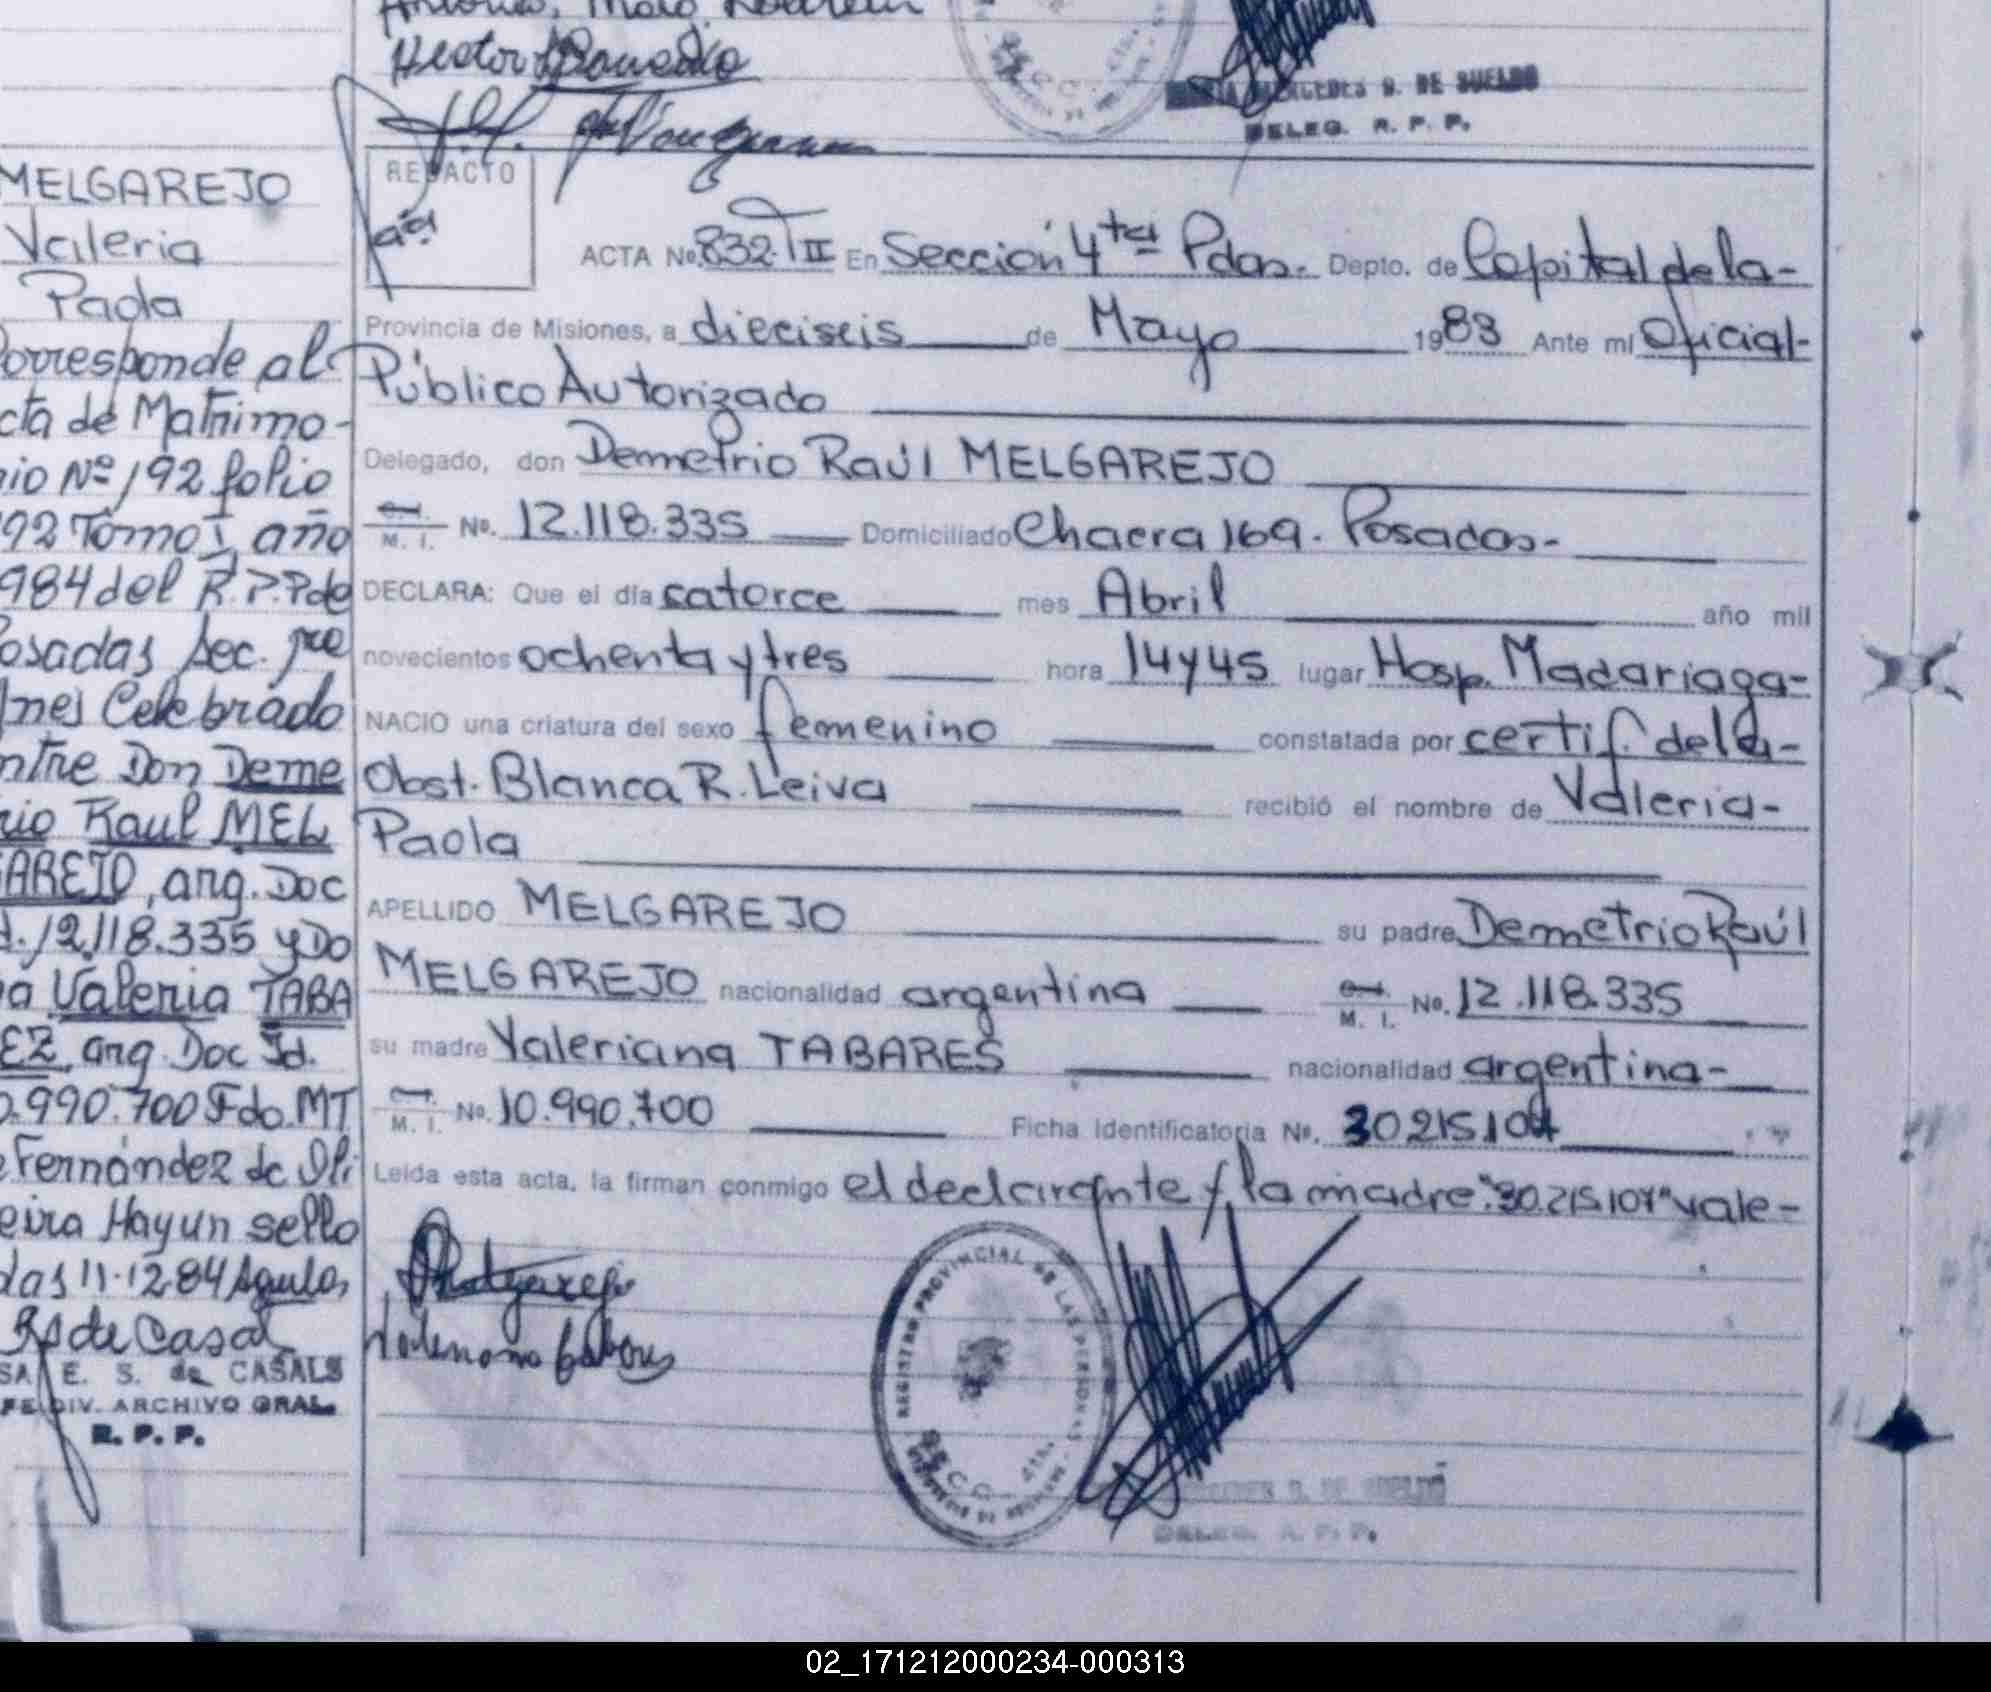 Hector
MARIA MERCEDES B. DE SUELDO
DELEG. R. P. P.
MELGAREJO
Valeria
Paola
Corresponde al
cta de Matrimo-
nio Nº 192 folio
92 Tomo I, año
984 del R.P.P de
osadas Sec. 1ra
Anej Celebrado
ntre Don Deme
rio Raul MEL
GAREJO, arg. Doc
d. 12.118.335 y Do
a Valeria TABA
EZ, arg. Doc Id.
0.990.700 Fdo. MT
e Fernández de Oli
eira Hayun sello
das 11-12-84
Rs de Casals
SA E. S. de CASALS
FE DIV. ARCHIVO GRAL.
R. P. P.
REDACTO
ACTA No. 832-TII En Sección 4ta Pdas. Depto. de Capital de la-
Provincia de Misiones, a dieciseis de Mayo 1983 Ante mí Oficial-
Público Autorizado
Delegado, don Demetrio Raúl MELGAREJO
M. I. No. 12.118.335 Domiciliado Chacra 169. Posadas-
DECLARA: Que el día catorce mes Abril año mil
novecientos ochenta y tres hora 14 y 45 lugar Hosp. Madariaga-
NACIO una criatura del sexo femenino constatada por certif. de la-
Obst. Blanca R. Leiva recibió el nombre de Valeria-
Paola
APELLIDO MELGAREJO su padre Demetrio Raúl
MELGAREJO nacionalidad argentina M. I. No. 12.118.335
su madre Valeriana TABARES nacionalidad argentina-
M. I. No. 10.990.700 Ficha Identificatoria No. 30215104
Leída esta acta, la firman conmigo el declarante y la madre "30.215.104" vale-
REGISTRO PROVINCIAL DE LAS PERSONAS
SECC. 4ta.
PROVINCIA DE MISIONES
B. DE SUELDO
DELEG. R. P. P.
02_171212000234-000313